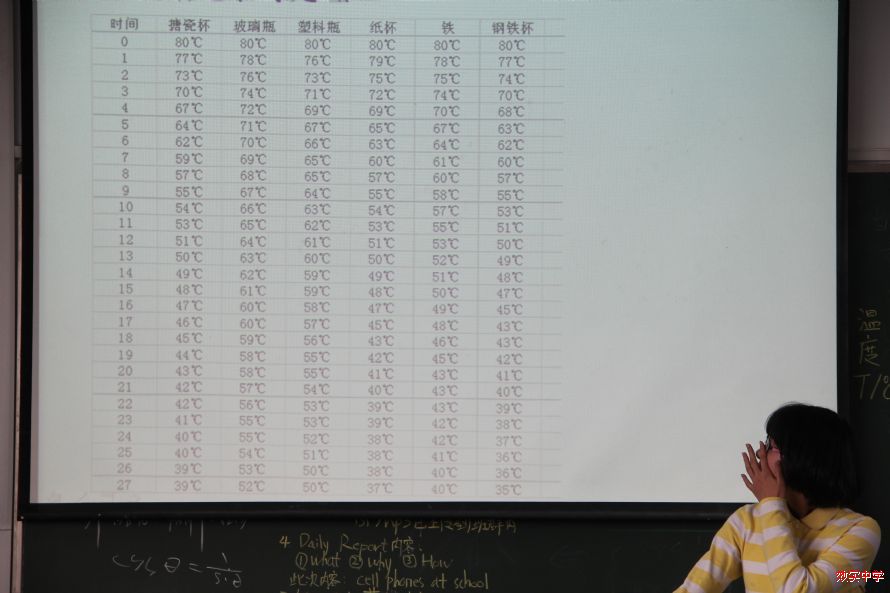 时间 搪瓷杯 玻璃瓶 塑料瓶 纸杯 铁 钢铁杯
0 80℃ 80℃ 80℃ 80℃ 80℃ 80℃
1 77℃ 78℃ 76℃ 79℃ 78℃ 77℃
2 73℃ 76℃ 73℃ 75℃ 75℃ 74℃
3 70℃ 74℃ 71℃ 72℃ 74℃ 70℃
4 67℃ 72℃ 69℃ 69℃ 70℃ 68℃
5 64℃ 71℃ 67℃ 65℃ 67℃ 63℃
6 62℃ 70℃ 66℃ 63℃ 64℃ 62℃
7 59℃ 69℃ 65℃ 60℃ 61℃ 60℃
8 57℃ 68℃ 65℃ 57℃ 60℃ 57℃
9 55℃ 67℃ 64℃ 55℃ 58℃ 55℃
10 54℃ 66℃ 63℃ 54℃ 57℃ 53℃
11 53℃ 65℃ 62℃ 53℃ 55℃ 51℃
12 51℃ 64℃ 61℃ 51℃ 53℃ 50℃
13 50℃ 63℃ 60℃ 50℃ 52℃ 49℃
14 49℃ 62℃ 59℃ 49℃ 51℃ 48℃
15 48℃ 61℃ 59℃ 48℃ 50℃ 47℃
16 47℃ 60℃ 58℃ 47℃ 49℃ 45℃
17 46℃ 60℃ 57℃ 45℃ 48℃ 43℃
18 45℃ 59℃ 56℃ 43℃ 46℃ 43℃
19 44℃ 58℃ 55℃ 42℃ 45℃ 42℃
20 43℃ 58℃ 55℃ 41℃ 43℃ 41℃
21 42℃ 57℃ 54℃ 40℃ 43℃ 40℃
22 42℃ 56℃ 53℃ 39℃ 43℃ 39℃
23 41℃ 55℃ 53℃ 39℃ 42℃ 38℃
24 40℃ 55℃ 52℃ 38℃ 42℃ 37℃
25 40℃ 54℃ 51℃ 38℃ 41℃ 36℃
26 39℃ 53℃ 50℃ 38℃ 40℃ 36℃
27 39℃ 52℃ 50℃ 37℃ 40℃ 35℃
温
度
T/℃
4 Daily Report内容:
①what ②why ③How
此次内容: cell phones at school
中学